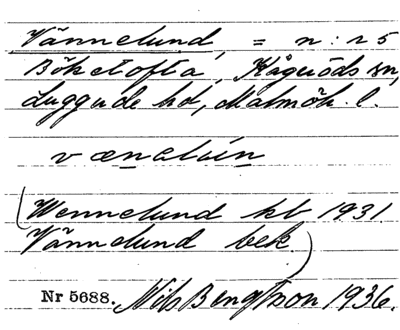 Vännelund, = n:r 5
Böketofta, Kågeröds sn,
Luggude hd, Malmöh. l.
vænəlún
(Wennelund kb 1931.
Vännelund bek.)
Nr 5688. Nils Bengtsson 1936.